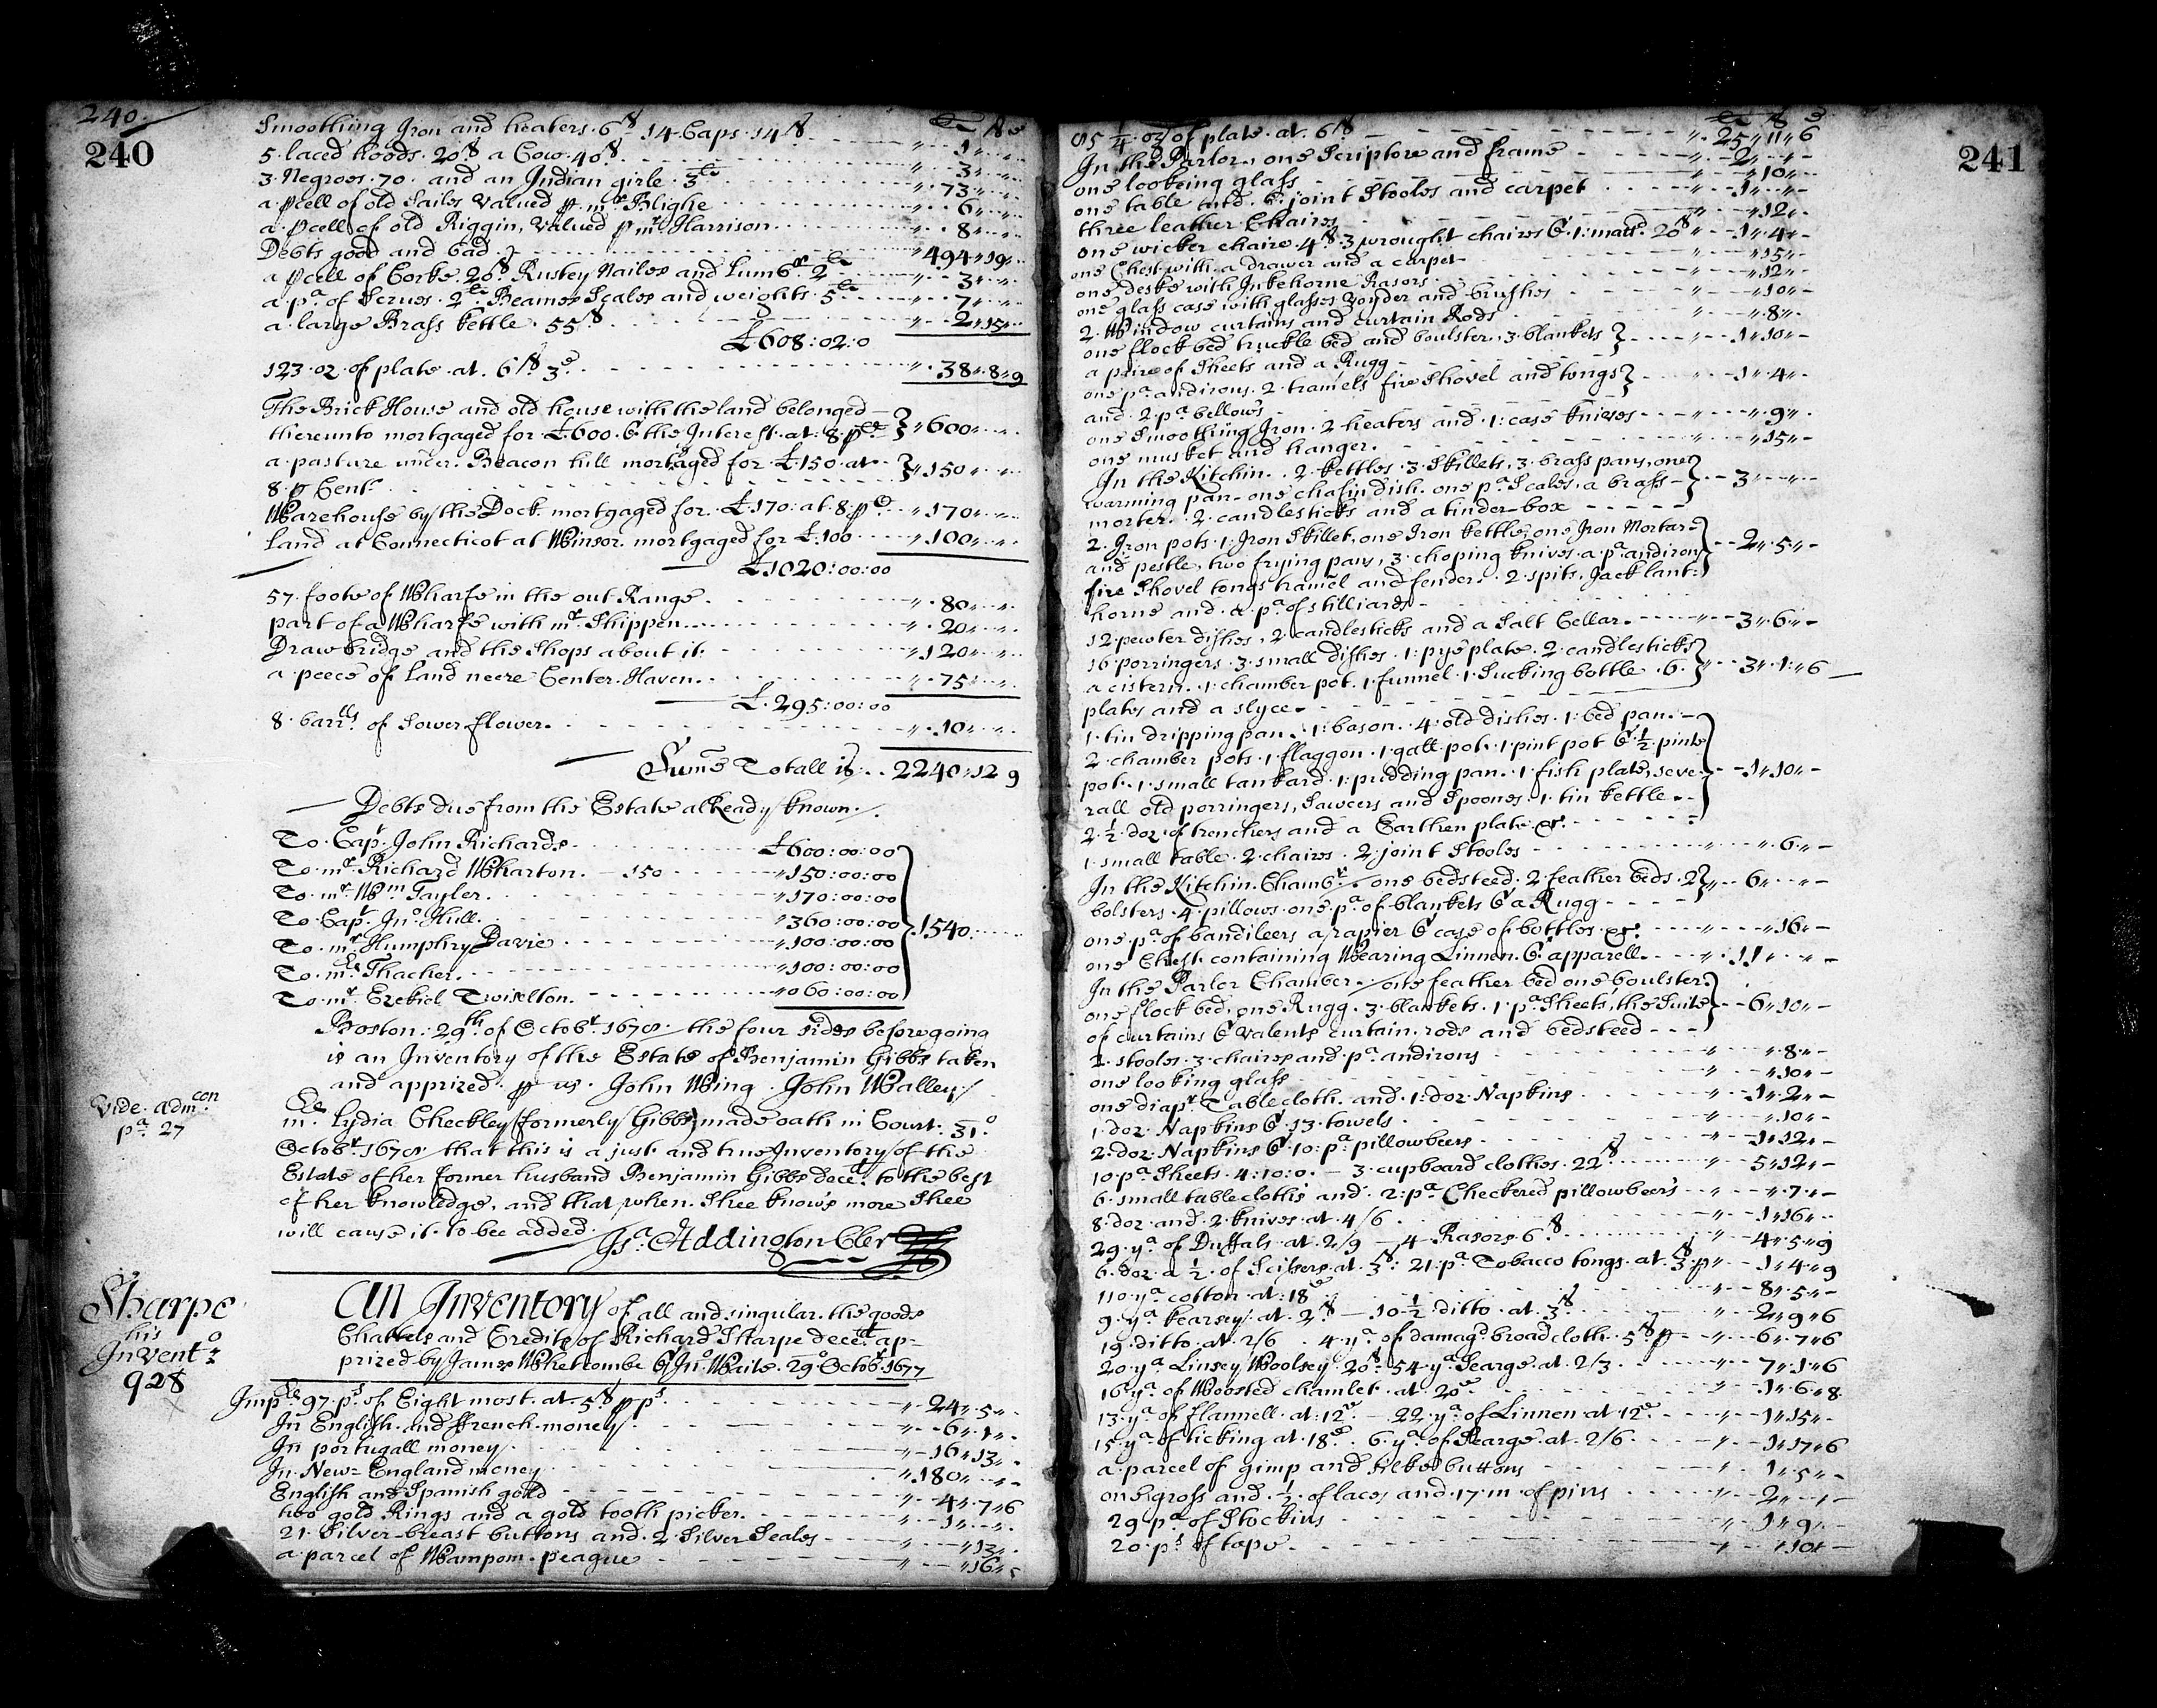 240.
240
£ s d
Smoothing Iron and heaters. 6s 14 Caps. 14s " 1 " "
5. laced hoods. 20s a Cow. 40s " 3 " "
3. Negroes. 70. and an Indian girle. 3li " 73 " "
a pcell of old Sailes valued p. mr. Blighe " 6 " "
a pcell of old Riggin, valued p mr Harrison " 8 " "
Debts good and bad } " 494 " 19 "
a pcell of Corke. 20s. Rustey Nailes and Lumbr. 2li " 3 " "
a pa. of Scrues. 2li. Beames Scales and weights. 5li " 7 " "
a large Brass kettle. 55s " 2 " 15 "
£608:02:0
123. oz. of plate. at. 6s. 3d. " 38 " 8 " 9
The Brick House and old house with the land belonged
thereunto mortgaged for £600. & the Interest. at. 8. p Ct. } " 600 " "
a pasture under. Beacon hill mortgaged for £.150. at } " 150 " "
8. p Cent.
Warehouse by the Dock mortgaged for. £170: at. 8: p C " 170 " "
Land at Connecticot at Winsor. mortgaged for £.100 " 100 " "
£1020:00:00
57. foote of Wharfe in the out Range. " 80 " "
part of a Wharfe with mr. Shippen " 20 " "
Drawbridge and the Shops about it. " 120 " "
a peece of Land neere Center. Haven. " 75 " "
£.295:00:00
8. barrlls of Sower flower. " 10 " "
Sume Totall is. 2240:12 9
Debts due from the Estate alReady known.
To Capt. John Richards £600:00:00
To mr. Richard Wharton. 150 " 150:00:00
To mr. Wm Tayler. " 170:00:00
To Capt. Jno. Hull. " 360:00:00 } 1540
To mr. Humphry Davie " 100:00:00
To mrs. Thacher. " 100:00:00
To mr. Ezekiel Twiselton. " 060:00:00
Boston: 29th of Octobr. 1678. the four sides beforegoing
is an Inventory of the Estate of Benjamin Gibbs taken
and apprized. p us. John Wing. John Walley.
Vide. admcon
pa. 27
mrs. Lydia Checkley (formerly Gibbs) made oath in Court. 31o
Octobr. 1678. that this is a just and true Inventory of the
Estate of her former husband Benjamin Gibbs deced. to the best
of her knowledge. and that when Shee knows more Shee
will cause it to bee added.
Isa. Addington Cler
Sharpe
his
Invento:
928
An Inventory of all and singular. the goods
Chattels and Credits of Richard Sharpe deced. ap-
prized by James Whetcombe & Jno. Waite. 29o Octobr. 1677
Imps. 97. ps. of Eight most. at. 5s p ps " 24 " 5 "
In English. and ffrench. money. " 6 " 1 "
In portugall money " 16 " 13 "
In New=England money " 180 " "
English and Spanish gold " 4 " 7 " 6
two gold Rings and a gold tooth picker. " 1 " "
21. Silver breast buttons and. 2. Silver Seales " " 13 "
a parcel of Wampom. peague " " 16 "
241
£ s d
85 1/4. oz of plate. at. 6s " 25 " 11 " 6
In the Parlor, one Scriptore and frame " 2 " "
one looking glass " " 10 "
one table and. 6. joint Stooles and carpet " 1 " "
three leather Chaires " " 12 "
one wicker chaire. 4s. 3 wrought chaires & 1: matt. 20s " 1 " 4 "
one Chest with a drawer and a carpet " " 15 "
one deske with Inkehorne Rasors " " 12 "
one glass case with glasses voyder and brushes " " 10 "
2. Window curtains and curtain Rods " " 8 "
one flock bed truckle bed and boulster, 3. blankets } " 1 " 10 "
a paire of Sheets and a Rugg
one pa. andirons. 2. tramels fire Shovel and tongs } " 1 " 4 "
and. 2. pa. bellows
one Smoothing Iron. 2 heaters and. 1: case knives " " 9 "
one musket and hanger. " " 15 "
In the Kitchin. 2. kettles. 3. Skillets, 3. brass pans, one
warming pan. one chafin dish. one pa. Scales, a brass } 3 " "
morter. 2. candlesticks and a tinder box
2. Iron pots. 1: Iron Skillet, one Iron kettle, one Iron Mortar
and pestle, two frying pans, 3. choping knives. a pa. andirons } 2 " 5 "
fire Shovel tongs tramel and fender. 2. spits. Jack lant:
horne and. a pa. of stilliards
12. pewter dishes, 2. candlesticks and a Salt Cellar. 3 " 6 "
16. porringers. 3. small dishes. 1: pye plate. 2. candlesticks
a cistern. 1. chamber pot. 1. funnel. 1. Sucking bottle. 6. } 3 " 1 " 6
plates and a slyce.
1. tin dripping pan. 1: bason. 4: old dishes. 1: bed pan.
2. chamber pots. 1. flaggon. 1. gall pot. 1 pint pot & 1/2 pinte
pot. 1. small tankard. 1: pudding pan. 1. fish plate, seve } 1 " 10 "
rall old porringers, Sawcers and Spoones. 1. tin kettle.
2 1/2. doz. of trenchers and a Earthen plate &c.
1. small table. 2. chaires. 2. joint Stooles " " 6 "
In the Kitchin. Chambr. one bedsteed. 2 feather beds. 2 } 6 " "
bolsters. 4. pillows. one. pa. of blankets & a Rugg
one pa. of bandileers a rapier & case of bottles. &c. " " 16 "
one Chest. containing Wearing Linnen. & apparell. " 11 " "
In the Parler Chamber. one feather bed one boulster
one flock bed, one Rugg. 3. blankets. 1. pa. Sheets, the Suite } 6 " 10 "
of curtains & valents curtain. rods and bedsteed
2. stooles. 3. chaires and. pa. andirons " " 8 "
one looking glass " " 10 "
one diapr. Table cloth. and. 1: doz. Napkins " 1 " 2 "
1. doz. Napkins & 13. towels " " 10 "
2. doz. Napkins & 10: pa. pillowbeers " 1 " 12 "
10. pa. Sheets. 4:10:0. 3. cupboard clothes. 22s " 5 " 12 "
6. small table cloths and. 2: pa. Checkered pillowbeers " " 7 "
8. doz. and. 2. knives. at. 4/6 " 1 " 16 "
29. ya. of Duffals. at. 2/9 4 Rasors. 6s " 4 " 5 " 9
6. doz. a 1/2. of Scissers. at. 3s: 21. pa. Tobacco tongs. at. 3s. p " 1 " 4 " 9
110. ya. cotton. at: 18d " 8 " 5 "
9. ya. kearsey. at. 2s 10 1/2. ditto. at. 3s " 2 " 9 " 6
19. ditto. at. 2/6. 4. ya. of damagd. broad cloth. 5s. p " 6 " 7 " 6
20. ya. Linsey Woolsey. 20s. 54. ya. Searge. at. 2/3 " 7 " 1 " 6
16. ya. of Woosted chamlet. at. 20d " 1 " 6 " 8
13. ya. of flannell. at: 12d. 22. ya. of Linnen. at 12d. " 1 " 15 "
15. ya. of ticking at. 18d. 6. ya. of Searge. at. 2/6. " 1 " 17 " 6
a parcel of gimp and silke buttons " 1 " 5 "
one gross and. 1/2. of laces and. 17. m. of pins " 2 " 1
29. pa. of Stockins " 1 " 9 "
20. ps. of tape. " " 10